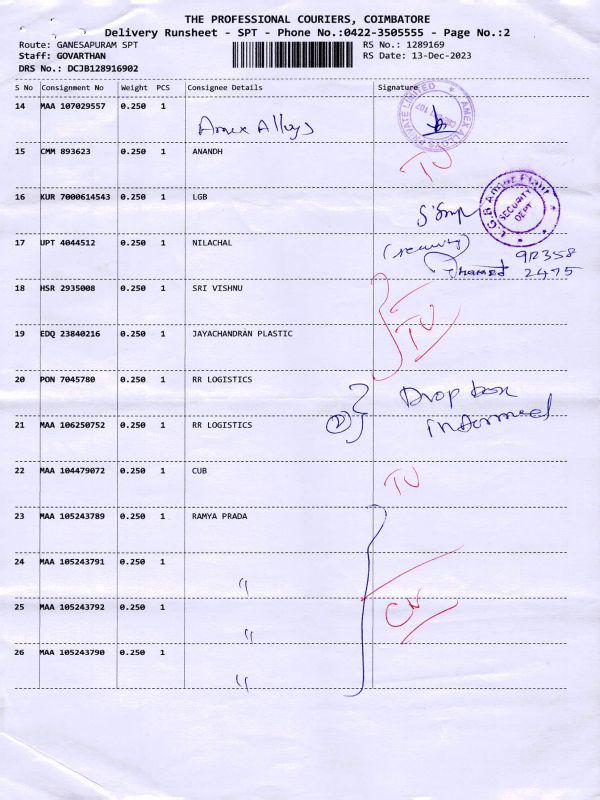 THE PROFESSIONAL COURIERS, COIMBATORE
Delivery Runsheet - SPT - Phone No.:0422-3505555 - Page No.:2
Route: GANESAPURAM SPT RS No.: 1289169
Staff: GOVARTHAN RS Date: 13-Dec-2023
DRS No.: DCJB128916902
S No Consignment No Weight PCS Consignee Details Signature
14 MAA 107029557 0.250 1 Amex Alloys
AMEX ALLOYS PRIVATE LIMITED
15 CMM 893623 0.250 1 ANANDH TU
16 KUR 7000614543 0.250 1 LGB
L.G.B Annur Plant SECURITY DEPT
17 UPT 4044512 0.250 1 NILACHAL (security)
98358
2475
18 HSR 2935008 0.250 1 SRI VISHNU TU
19 EDQ 23840216 0.250 1 JAYACHANDRAN PLASTIC
20 PON 7045780 0.250 1 RR LOGISTICS Drop box
21 MAA 106250752 0.250 1 RR LOGISTICS (2) informed
22 MAA 104479072 0.250 1 CUB TU
23 MAA 105243789 0.250 1 RAMYA PRADA
24 MAA 105243791 0.250 1 "
25 MAA 105243792 0.250 1 " CN
26 MAA 105243790 0.250 1 "